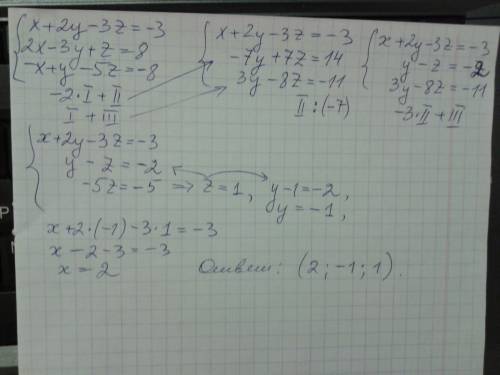 x+2y-3z=-3
2x-3y+z=8
-x+y-5z=-8
-2·I+II
I+III
x+2y-3z=-3
-7y+7z=14
3y-8z=-11
II:(-7)
x+2y-3z=-3
y-z=-2
3y-8z=-11
-3·II+III
x+2y-3z=-3
y-z=-2
-5z=-5 => z=1, y-1=-2,
y=-1,
x+2·(-1)-3·1=-3
x-2-3=-3
x=2
Ответ: (2;-1;1).